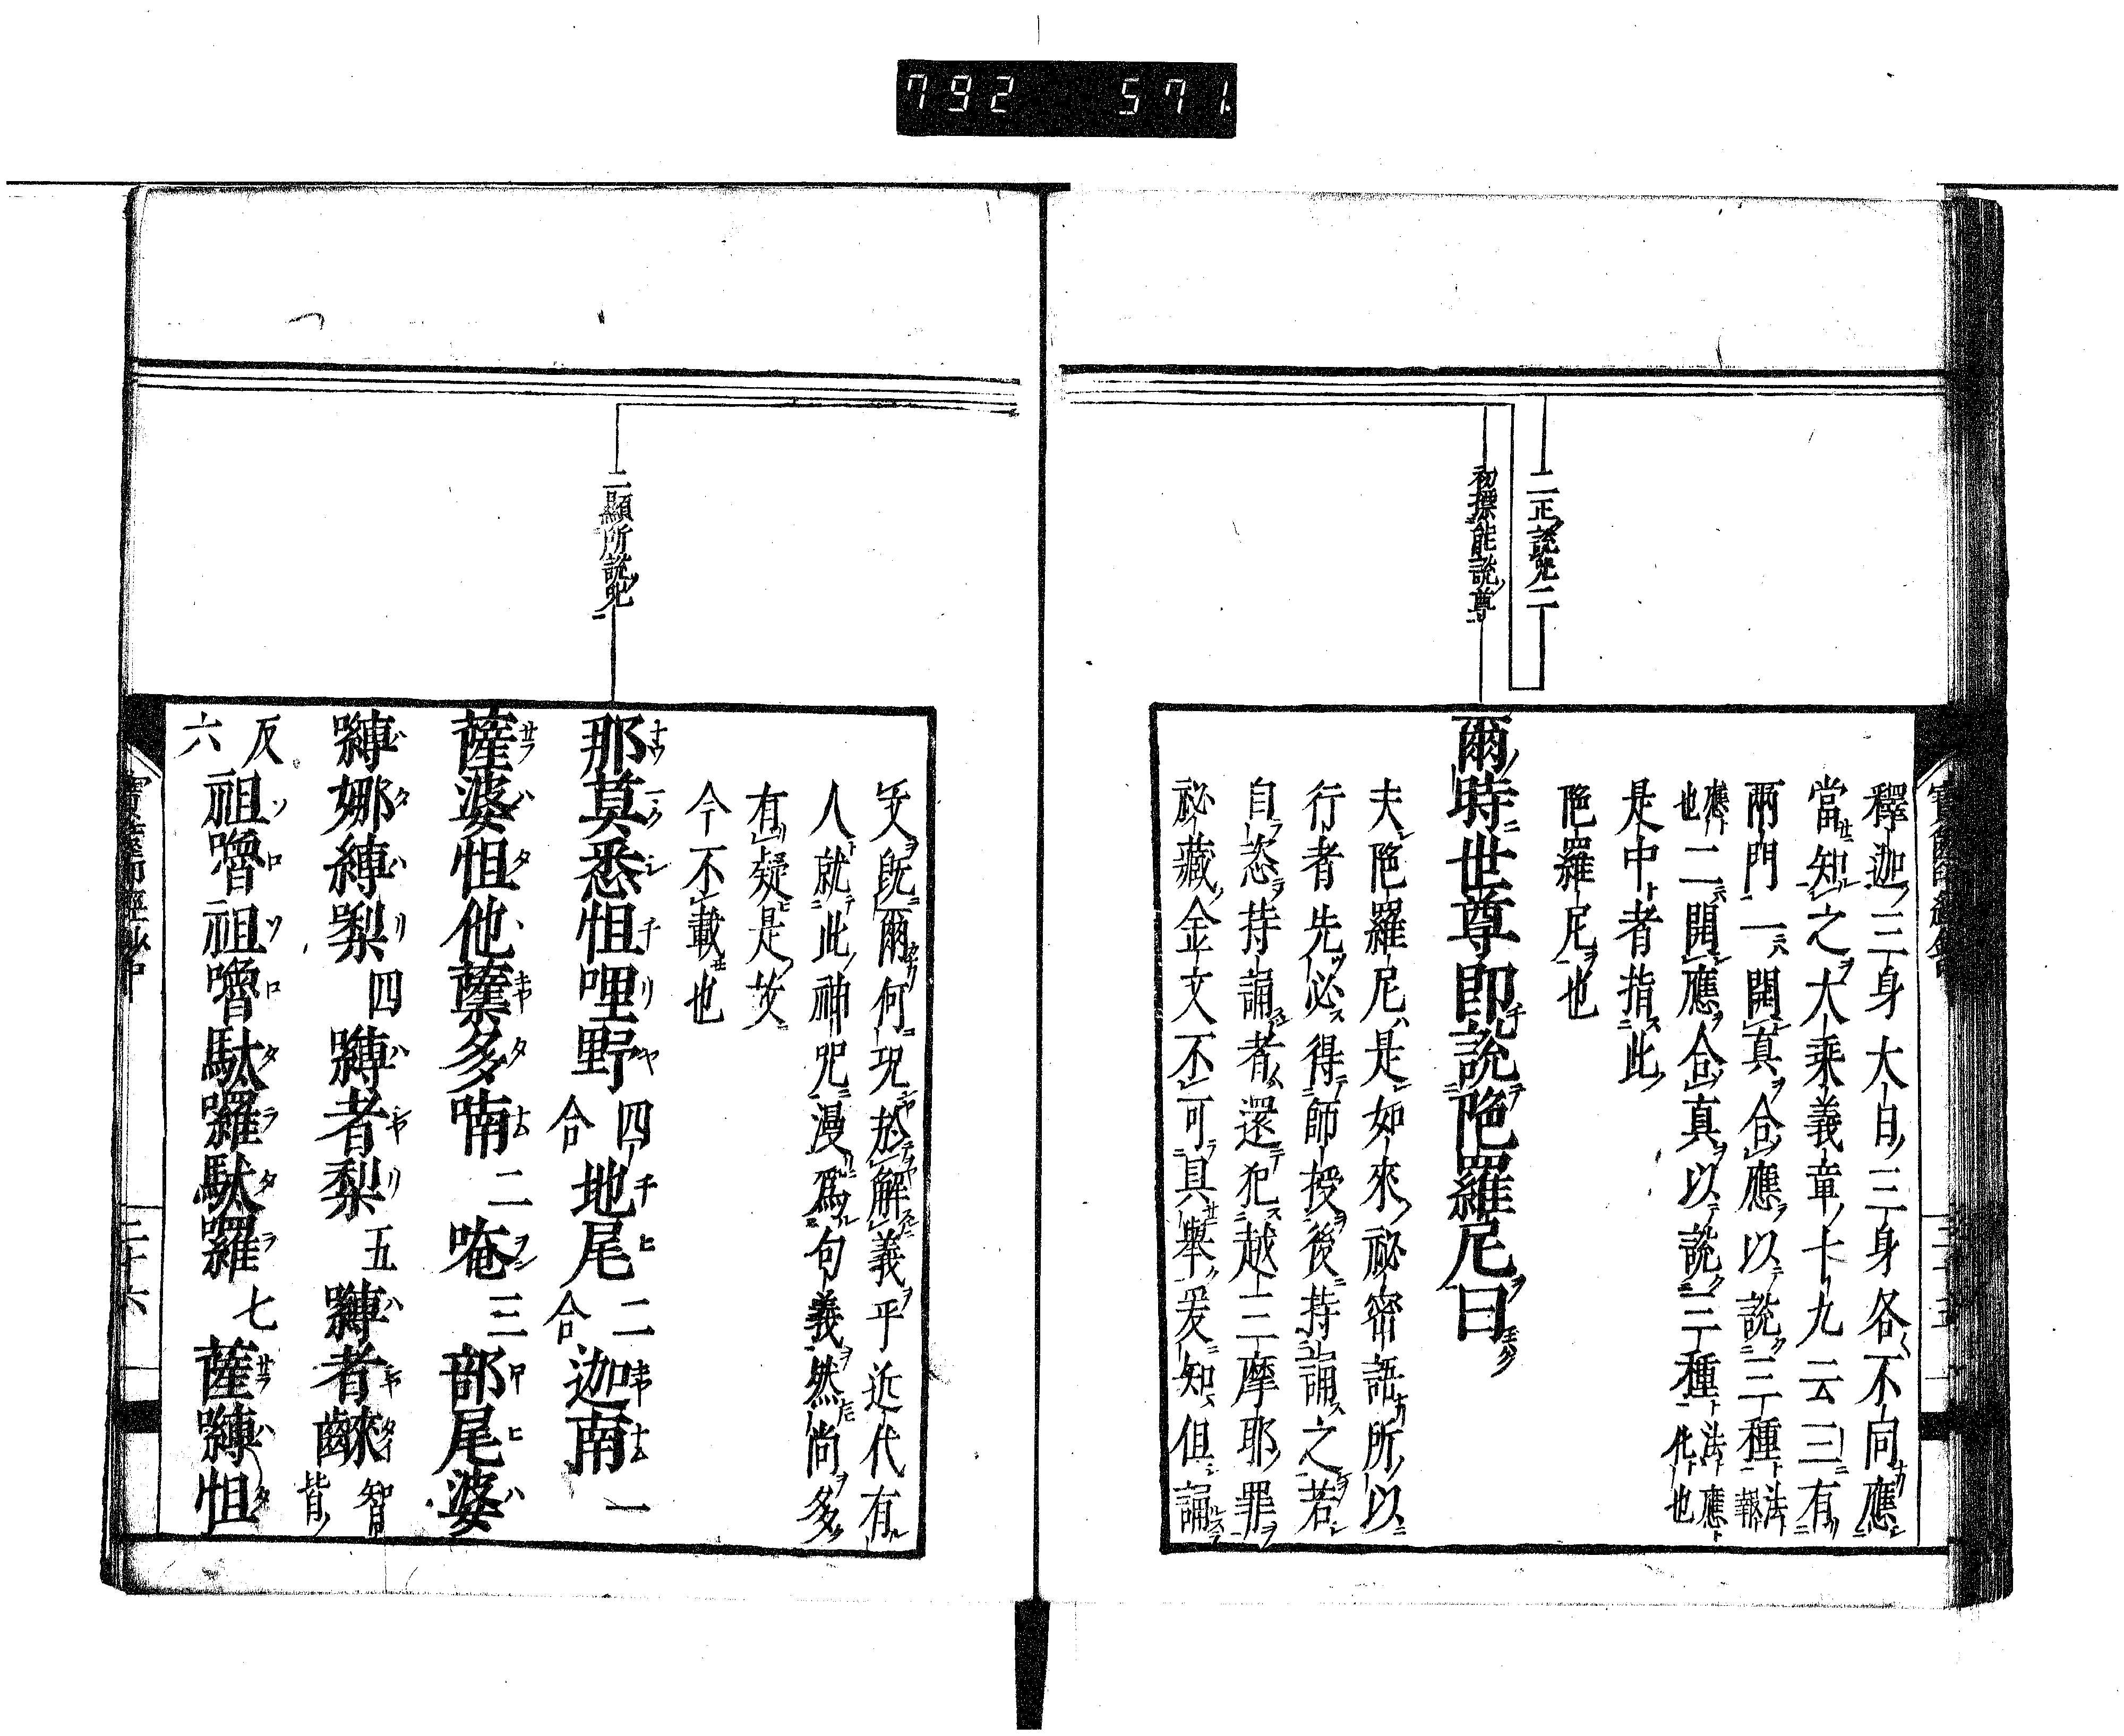 792 571
二正説咒二
初標能説尊
釋迦三身大日三身各不同應
當知之大乘義章十九云三有
兩門一開真合應以説三種法報
應也二開應合真以説三種法應化也
是中者指此
陁羅尼也
爾時世尊即説陁羅尼曰
夫陁羅尼是如來祕密語所以
行者先必得師授後持誦之若
自恣持誦者還犯越三摩耶罪
祕藏金文不可具舉爰知但誦
二顯所説咒
文既爾何況於解義乎近代有
人就此神咒漫爲句義然尚多
有疑是故
今不載也
那莫悉怛哩野四合地尾二合迦南一
薩婆怛他蘗多喃二唵三部尾婆
嚩娜縛㘑四嚩者㘑五嚩者齻智皆
反六祖嚕祖嚕馱囉馱囉七薩嚩怛
二十六